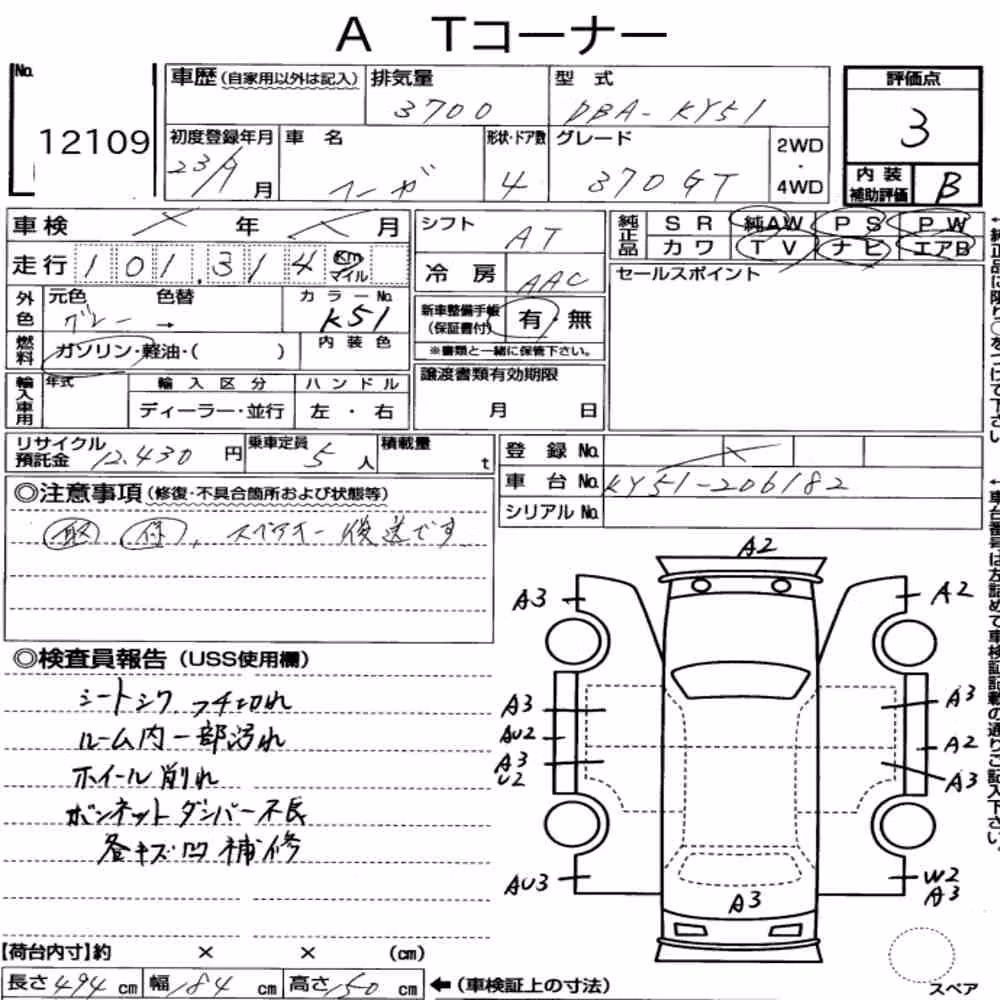 A Tコーナー
No.
12109
車歴(自家用以外は記入) 排気量 3700 型式 DBA-KY51
評価点 3
初度登録年月 23/9 月 車名 フーガ 形状・ドア数 4 グレード 370GT 2WD・4WD
内装補助評価 B
車検 × 年 × 月
走行 101,314 Km マイル
シフト AT
冷房 AAC
純正品 SR 純AW PS PW
カワ TV ナビ エアB
セールスポイント
外色 元色 グレー → 色替 カラーNo. K51
燃料 ガソリン・軽油・( ) 内装色
新車整備手帳(保証書付) 有 無
※書類と一緒に保管下さい。
輸入車用 年式 輸入区分 ハンドル
ディーラー・並行 左・右
譲渡書類有効期限
月 日
リサイクル預託金 12.430 円 乗車定員 5 人 積載量 t
登録No. ×
車台No. KY51-206182
シリアルNo.
◎注意事項(修復・不具合箇所および状態等)
取 保、スペアキー後送です
◎検査員報告(USS使用欄)
シートシワ フチ切れ
ルーム内一部汚れ
ホイール削れ
ボンネットダンパー不良
各キズ凹補修
A2
A3 A2
A3 A3
AU2 A2
A3 U2 A3
AU3 W2 A3
A3
スペア
【荷台内寸】約 × × (cm)
長さ 494 cm 幅 184 cm 高さ 150 cm ←(車検証上の寸法)